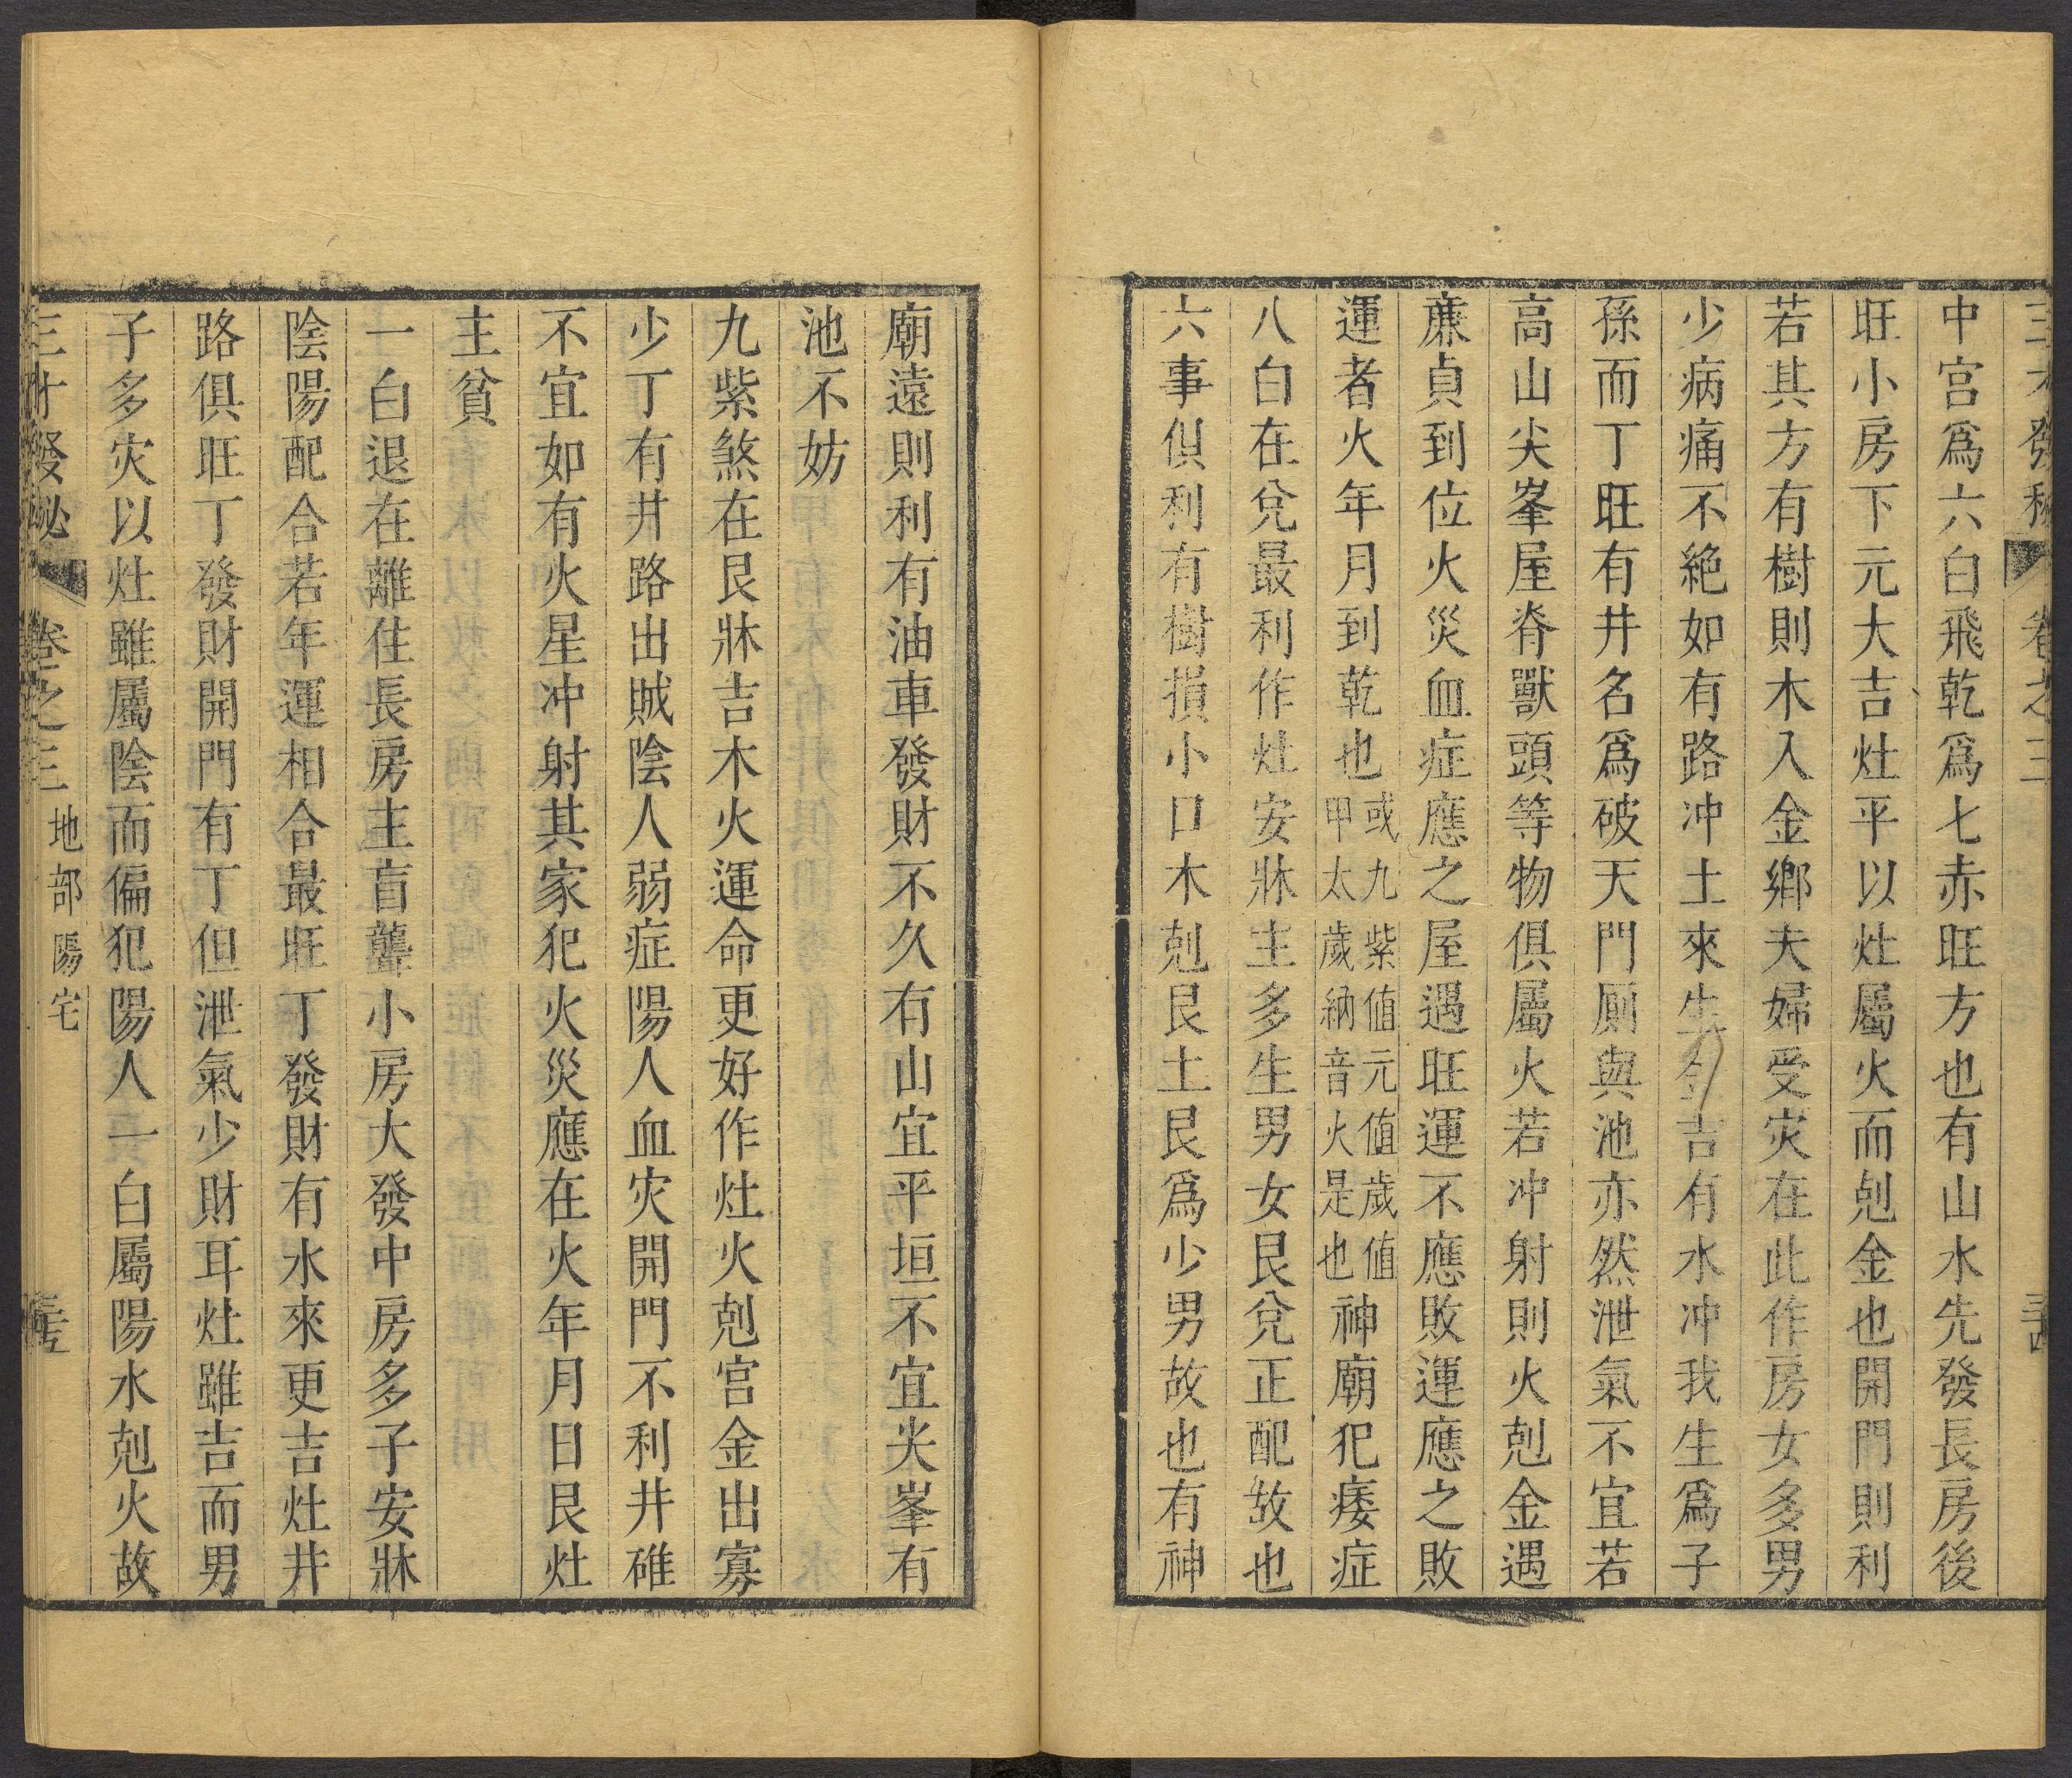 三才發秘 卷之三 三十四
中宮爲六白飛乾爲七赤旺方也有山水先發長房後
旺小房下元大吉灶平以灶屬火而剋金也開門則利
若其方有樹則木入金鄉夫婦受灾在此作房女多男
少病痛不絶如有路冲土來生金吉有水冲我生爲子
孫而丁旺有井名爲破天門厠與池亦然泄氣不宜若
高山尖峯屋脊獸頭等物俱屬火若冲射則火剋金遇
亷貞到位火災血症應之屋遇旺運不應敗運應之敗
運者火年月到乾也或九紫值元值歲值甲太歲納音火是也神廟犯痿症
八白在兌最利作灶安牀主多生男女艮兌正配故也
六事俱利有樹損小口木剋艮土艮爲少男故也有神
廟遠則利有油車發財不久有山宜平垣不宜尖峯有
池不妨
九紫煞在艮牀吉木火運命更好作灶火剋宮金出寡
少丁有井路出賊陰人弱症陽人血灾開門不利井碓
不宜如有火星冲射其家犯火災應在火年月日艮灶
主貧
一白退在離住長房主盲聾小房大發中房多子安牀
陰陽配合若年運相合最旺丁發財有水來更吉灶井
路俱旺丁發財開門有丁但泄氣少財耳灶雖吉而男
子多灾以灶雖屬陰而偏犯陽人一白屬陽水剋火故
三才發秘 卷之三 地部 陽宅 三十五